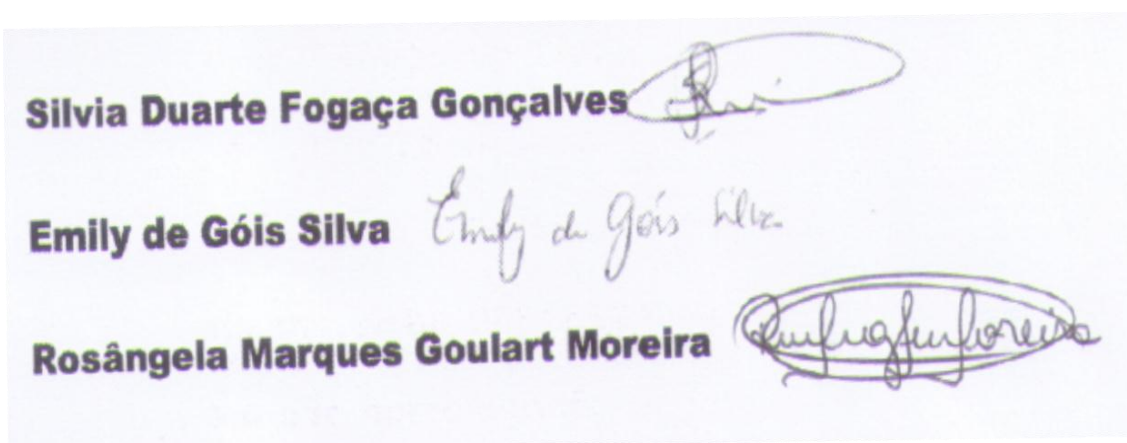 Silvia Duarte Fogaça Gonçalves
Emily de Góis Silva Emily de Góis Silva
Rosângela Marques Goulart Moreira